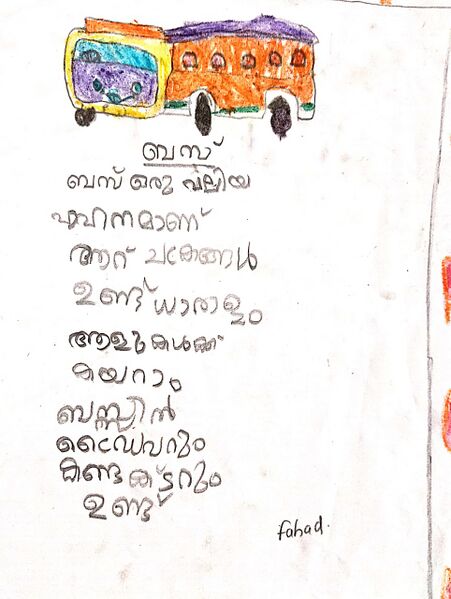 ബസ്
ബസ് ഒരു വലിയ
വാഹനമാണ്
ആറ് ചക്രങ്ങൾ
ഉണ്ട് ധാരാളം
ആളുകൾക്ക്
കയറാം
ബസ്സിൽ
ഡ്രൈവറും
കണ്ടക്ടറും
ഉണ്ട്
fahad.